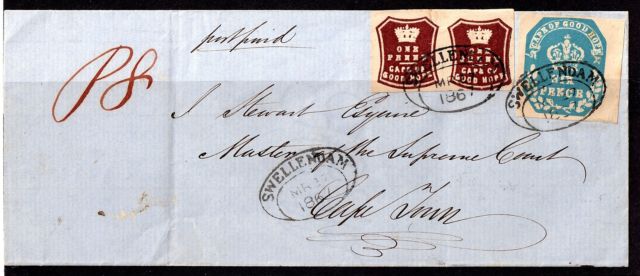 post paid
P8
ONE
PENNY
CAPE OF
GOOD HOPE
ONE
PENNY
CAPE OF
GOOD HOPE
CAPE OF GOOD HOPE
SIX
PENCE
SWELLENDAM
1867
SWELLENDAM
J Stewart Esquire
Master of the Supreme Court
Cape Town
SWELLENDAM
MR
1867